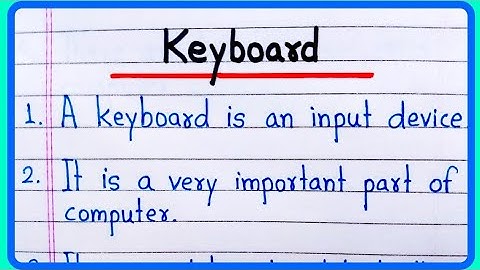 Keyboard
1. A keyboard is an input device
2. It is a very important part of
computer.